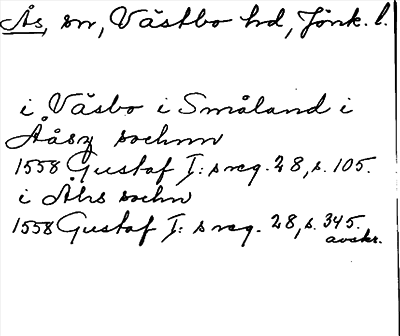 Ås, sn, Västbo hd, Jönk. l.
i Väsbo i Småland i
Ååsz sochnn
1558 Gustaf I: s reg. 28, s. 105.
i Åhs sochn
1558 Gustaf I: s reg. 28, s. 345.
avskr.